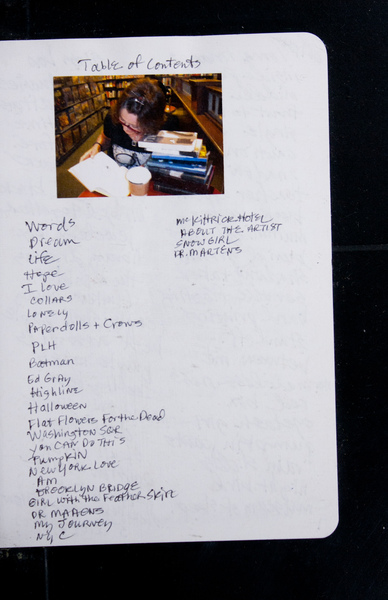 Table of Contents
Words
Dream
Life
Hope
I Love
Collars
Lonely
Paperdolls + Crows
PLH
Batman
Ed Gray
Highline
Halloween
Flat Flowers For the Dead
Washington SQR
you CAN Do This
Pumpkin
New York Love
AM
Brooklyn Bridge
Girl with the Feather Skirt
DR MARTENS
My Journey
NYC
McKittrick Hotel
ABOUT THE ARTIST
SNOWGIRL
DR. MARTENS